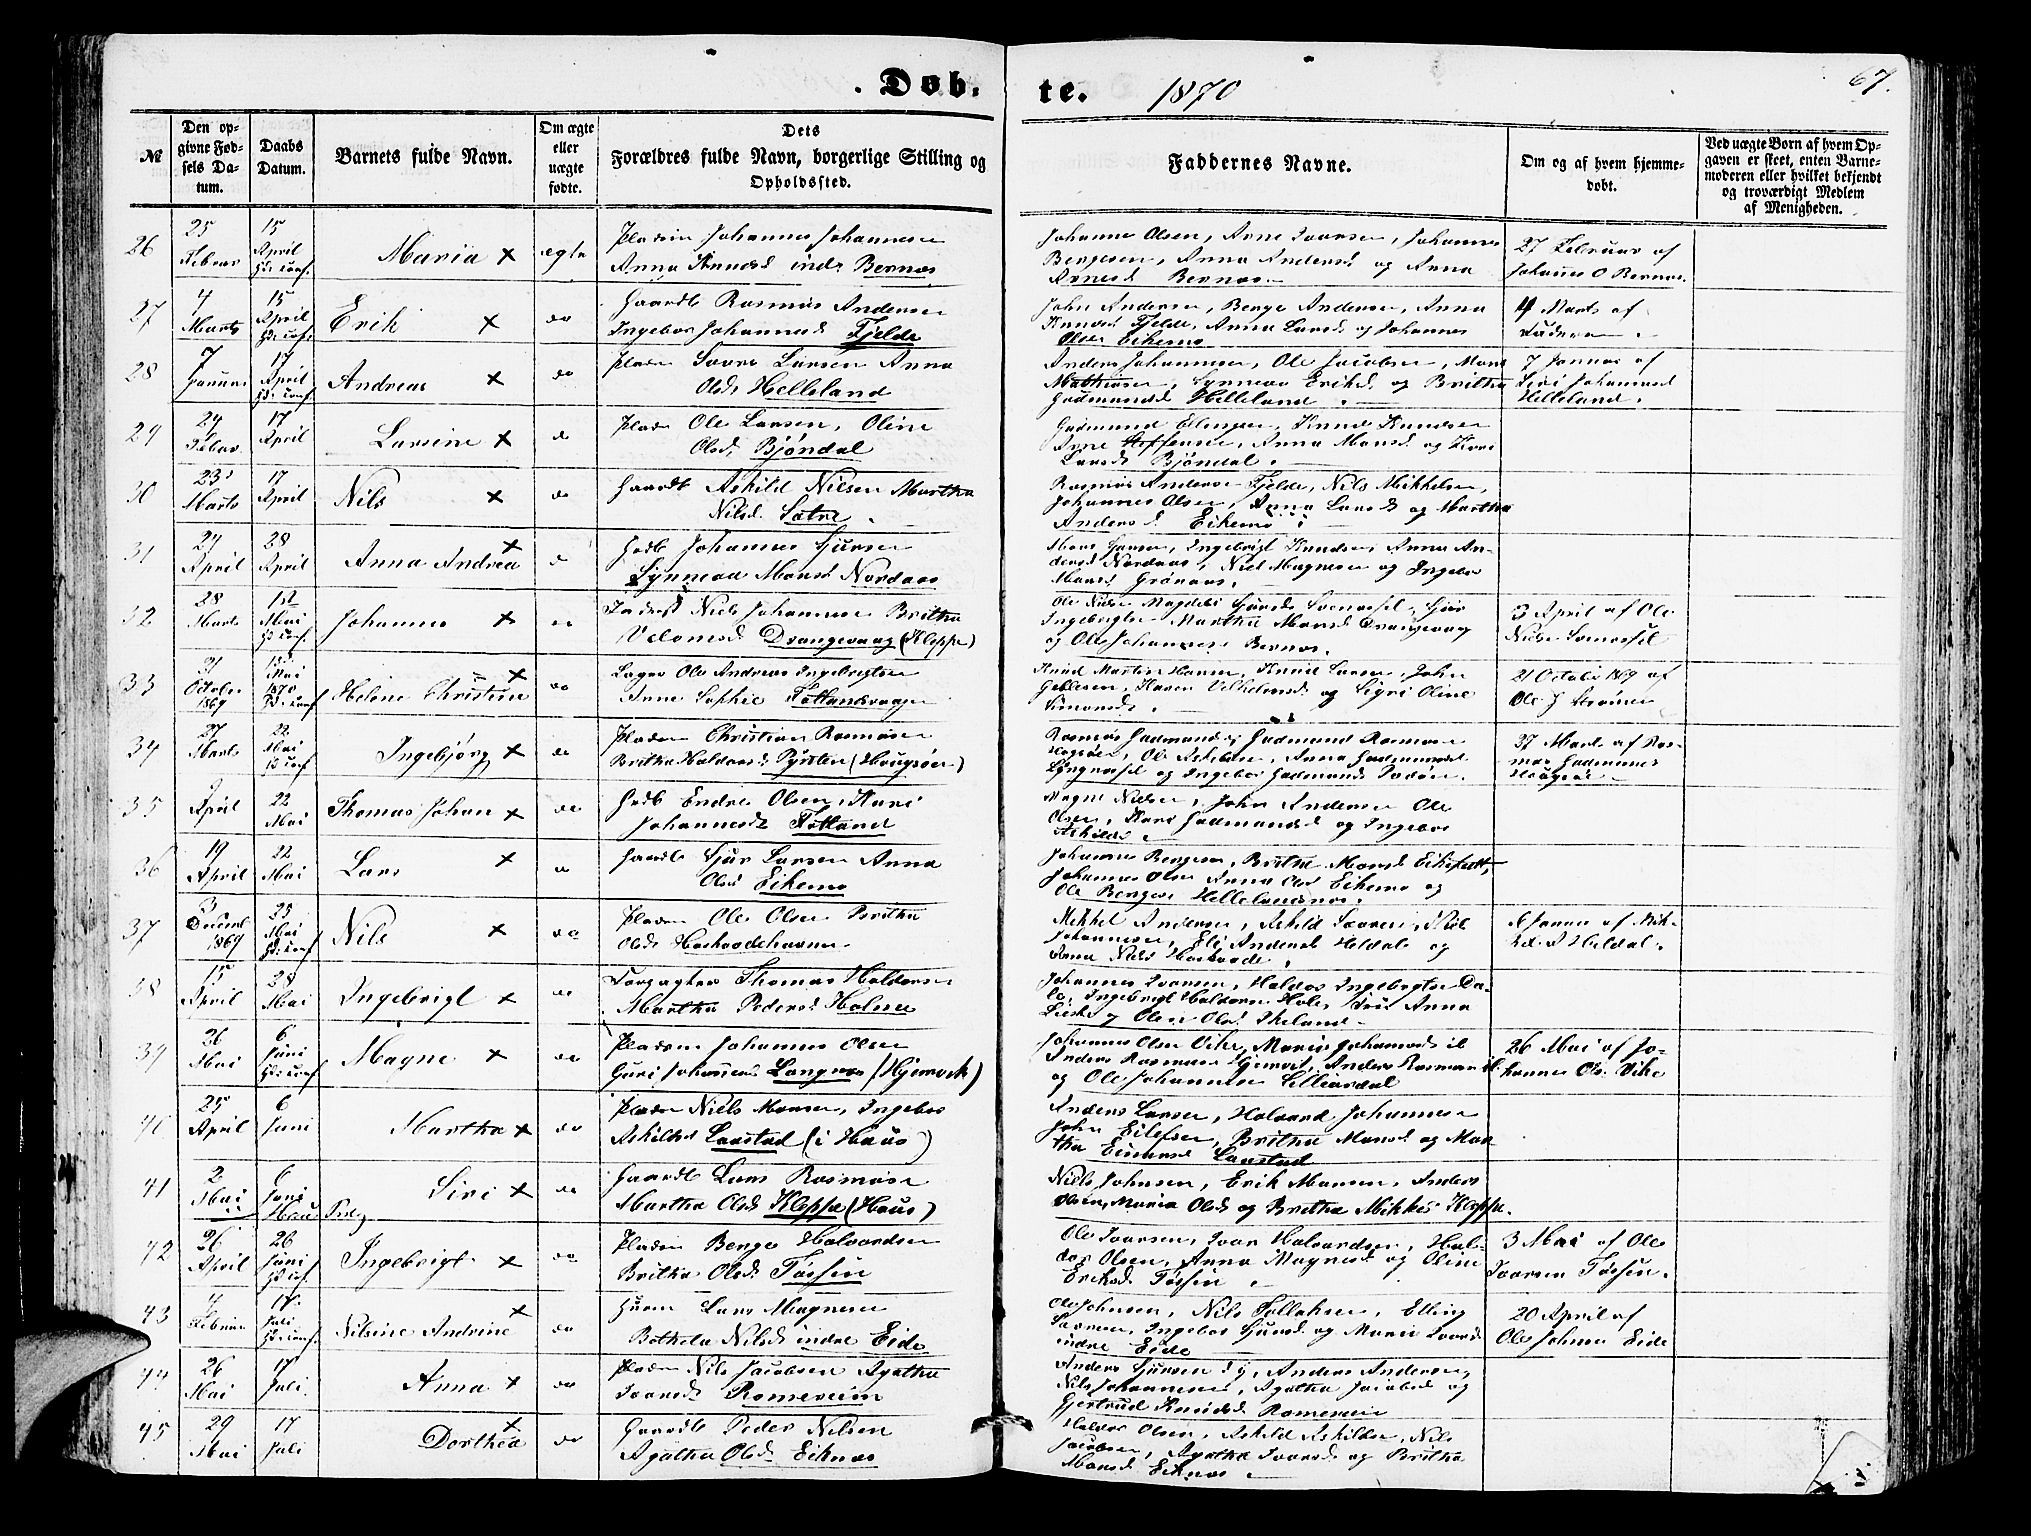 Døb- te. 1870 67.
№ Den opgivne Fødsels Datum. Daabs Datum. Barnets fulde Navn. Om ægte eller uægte fødte. Dets Forældres fulde Navn, borgerlige Stilling og Opholdssted. Faddernes Navne. Om og af hvem hjemmedøbt. Ved uægte Børn af hvem Opgaven er skeet, enten Barnemoderen eller hvilket bekjendt og troværdigt Medlem af Menigheden.
26 25 Februar 15 April Maria × ægte
Pladsm Johannes Johannesen
Anna Knudsd indr Bernæs
Johannes Olsen, Arne Ivarsen, Johannes
Bergesen, Anna Andersd og Anna
Arnesd Bernæs
27 Februar af
Johannes O Bernæs.
27 4 Marts 15 April Erik × do
Gaardb Rasmus Andersen
Ingebor Johannesd Fjelde
John Andersen, Berge Andersen, Anna
Knudsd Fjelde, Anna Larsd og Johannes
Olsen Eikemo
4 Marts af
Faderen
28 7 Januar 17 April Andreas × do
Pladsm Larsen Anna
Olsd Helleland
Anders Johannesen, Ole Jacobsen, Mons
Mathiasen, Synneva Eriksd og Britha
Gudmundsd Helleland.
7 Januar af
Siri Johannesd
Helleland.
29 24 Febar 17 April Larsine × do
Pladsm Ole Larsen, Oline
Olsd, Bjøndal
Gudmund Ellingsen, Knud Knudsen
Arne Steffensen, Anna Monsd og Kari
Larsd Bjøndal.
30 23 Marts 17 April Nils × do
Gaardb Askild Nilsen Martha
Nilsd. Sætre.
Rasmus Andersen Fjelde, Nils Mikkelsen,
Johannes Olsen, Anna Larsd og Martha
Andersd. Eikemo
31 24 April 28 April Anna Andrea × do
Gdb Johannes Sjursen
Synneva Monsd Nordaas
Mons Hansen, Ingebrigt Knudsen, Anna An-
dersd Nordaas, Niel Magnesen og Ingebor
Monsd Grønaas.
32 28 Marts 1st Mai Johannes × do
Niels Johannesen Britha
Drangevaag (Kleppe)
Ole Nielsen Magdeli Sjursd Sjur
Ingebrigtsen Martha Monsd Drangevaag
og Ole Johannesen Bernæs.
3 April af Ole
Nielsen
33 October 1869 Mai 1870 Helene Christine × do
Ole Andreas Ingebrigtsen
Anne Sophie Fotlandsvaagen
Knud Martin Hansen, Knud Larsen, John
Gabrielsen, Karen Vilhelmsd og Sigri Oline
Simonsd.
21 October 1869 af
Ole J Strømmen
34 27 Marts 22 Mai Ingebjørg × do
Pladsm Christian Rasmusen
Britha Haldorsd Pysten (Haugsøen)
Rasmus Gudmundsen Gudmund Rasmusen
Haugsøen, Ole Askildsen, Anna Gudmundsd
og Ingebor Gudmundsd
27 Marts af Ras-
mus Gudmundsen
Haugsøe
35 9 April 22 Mai Thomas Johan × do
Gdb Endre Olsen, Kari
Johannesd Fotland
Magne Nielsen, John Andersen Ole
Olsen, Kari Gudmundsd og Ingebor
Askildsd.
36 19 April 22 Mai Lars × do
Gaardb Sjur Larsen Anna
Olsd Eikemo
Johannes Bergesen, Britha Monsd Eikefædt,
Johannes Olsen Anna Olsd Eikemo og
Ole Bergesen Hellelandsnes.
37 3 Decemb 1869 25 Mai Nils × do
Pladsm Ole Olsen Britha
Olsd
Mikkel Andersen, Askild Ivarsen, Niels
Johannesen, Eli Andersd Heldal og
Anna Nielsd
6 Januar af Mik-
kel A Heldal.
38 15 April 28 Mai Ingebrigt × do
Forpagter Thomas Haldorsen
Martha Pedersd Holmen
Johannes Ivarsen, Haldor Ingebrigtsen Da-
le, Ingebrigt Haldorsen Hole, Siri Anna
og Oline Olsd
39 26 Mai 6 Juni Magne × do
Pladsm Johannes Olsen
Guri Johannesd Langnes (Hjemvik)
Johannes Olsen Vike, Marie Johannesd
Anders Rasmusen Hjemvik, Anders Rasmusen
og Ole Johannesen Lilleasdal
26 Mai af Jo-
hannes Ols. Vike
40 25 April 6 Juni Martha × do
Pladsm Niels Monsen, Ingebor
Askildsd Laastad (i Haus)
Anders Larsen, Halvard Johannesen
John Eilefsen, Britha Monsd og Mar-
tha Einarsd Laastad
41 2 Mai 6 Juni Haus Siri × do
Gaardb Lars Rasmusen
Martha Olsd Kleppe (Haus)
Niels Johnsen, Erik Monsen, Anders
Olsen, Maria Olsd og Britha Mikkelsd Kleppe.
42 26 April 26 Juni Ingebrigt × do
Pladsm Berge Halvardsen
Britha Olsd Tøssen
Ole Ivarsen, Ivar Halvardsen, Hal-
dor Olsen, Anna Magnesd og Oline
Eriksd Tøssen
3 Mai af Ole
Ivarsen Tøssen.
43 4 Februar 17 Juli Nilsine Andrine × do
Lars Magnesen
Bothela Nilsd indre Eide
Ole Johnsen, Nils Tollaksen, Elling
Larsen, Ingebor Sjursd og Marie Ivarsd
indre Eide
20 April af
Ole Johnsen Eide
44 26 Mai 17 Juli Anna × do
Pladsm Nils Jacobsen Agatha
Ivarsd Romereim
Anders Sjursen, Anders Andersen,
Nils Johannesen, Agatha Jacobsd og
Gjertrud Knudsd Romereim
45 29 Mai 17 Juli Dorthea × do
Gaardb Peder Nilsen
Agatha Olsd Eiknæs
Haldor Olsen, Askild Askildsen, Nils
Jacobsen, Agatha Ivarsd og Britha
Monsd Eiknæs